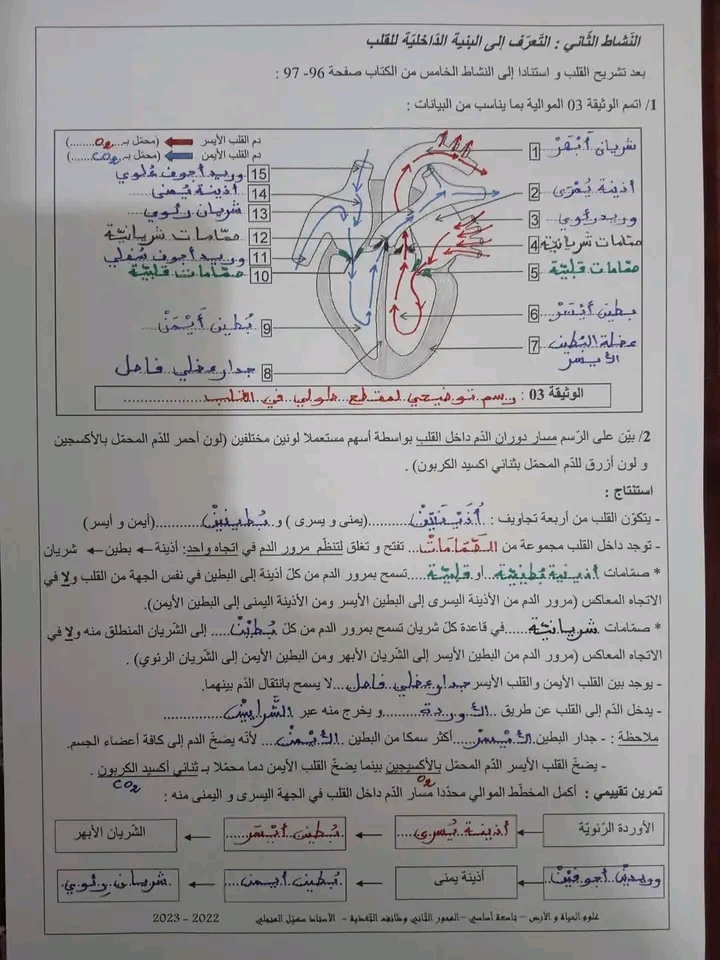 النّشاط الثّاني : التّعرّف إلى البنية الدّاخليّة للقلب
بعد تشريح القلب و استنادا إلى النشاط الخامس من الكتاب صفحة 96- 97 :
1/ اتمم الوثيقة 03 الموالية بما يناسب من البيانات :
دم القلب الأيسر (محمّل بـ...O2...)
دم القلب الأيمن (محمّل بـ...CO2...)
1 شريان أبهر
2 أذينة يسرى
3 وريد رئوي
4 صمّامات شريانيّة
5 صمّامات قلبيّة
6 بطين أيسر
7 عضلة البطين الأيسر
15 وريد أجوف علوي
14 أذينة يمنى
13 شريان رئوي
12 صمّامات شريانيّة
11 وريد أجوف سفلي
10 صمّامات قلبيّة
9 بُطين أيمن
8 جدار عضلي فاصل
الوثيقة 03 : رسم توضيحي لمقطع طولي في القلب
2/ بيّن على الرّسم مسار دوران الدّم داخل القلب بواسطة أسهم مستعملا لونين مختلفين (لون أحمر للدّم المحمّل بالأكسجين
و لون أزرق للدّم المحمّل بثنائي اكسيد الكربون) .
استنتاج :
- يتكوّن القلب من أربعة تجاويف : أُذينتين (يمنى و يسرى) و بُطينين (أيمن و أيسر)
- توجد داخل القلب مجموعة من الصّمّامات تفتح و تغلق لتنظّم مرور الدم في اتجاه واحد: أذينة ← بطين ← شريان
* صمّامات أذينية بُطينيّة أو قلبيّة تسمح بمرور الدم من كلّ أذينة إلى البطين في نفس الجهة من القلب ولا في
الاتجاه المعاكس (مرور الدم من الأذينة اليسرى إلى البطين الأيسر ومن الأذينة اليمنى إلى البطين الأيمن).
* صمّامات شريانيّة في قاعدة كلّ شريان تسمح بمرور الدم من كلّ بُطين إلى الشّريان المنطلق منه ولا في
الاتجاه المعاكس (مرور الدم من البطين الأيسر إلى الشّريان الأبهر ومن البطين الأيمن إلى الشّريان الرئوي).
- يوجد بين القلب الأيمن والقلب الأيسر جدار عضلي فاصل لا يسمح بانتقال الدّم بينهما.
- يدخل الدّم إلى القلب عن طريق الأوردة و يخرج منه عبر الشّرايين
ملاحظة : - جدار البطين الأيسر أكثر سمكا من البطين الأيمن لأنّه يضخّ الدم إلى كافة أعضاء الجسم.
- يضخّ القلب الأيسر الدّم المحمّل بالأكسيجين بينما يضخّ القلب الأيمن دما محمّلا بـ ثنائي أكسيد الكربون .
O2 CO2
تمرين تقييمي : أكمل المخطّط الموالي محدّدا مسار الدّم داخل القلب في الجهة اليسرى و اليمنى منه :
الأوردة الرّئويّة ← أذينة يُسرى ← بُطين أيسر ← الشّريان الأبهر
وريدين أجوفين ← أذينة يمنى ← بُطين أيمن ← شريان رئوي
علوم الحياة و الأرض – تاسعة أساسي – المحور الثّاني وظائف التّغذية – الأستاذ سهيل 2022 - 2023